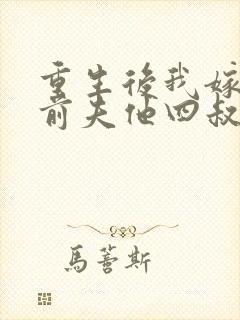 重生後我嫁
前夫他四叔
馬蓍斯